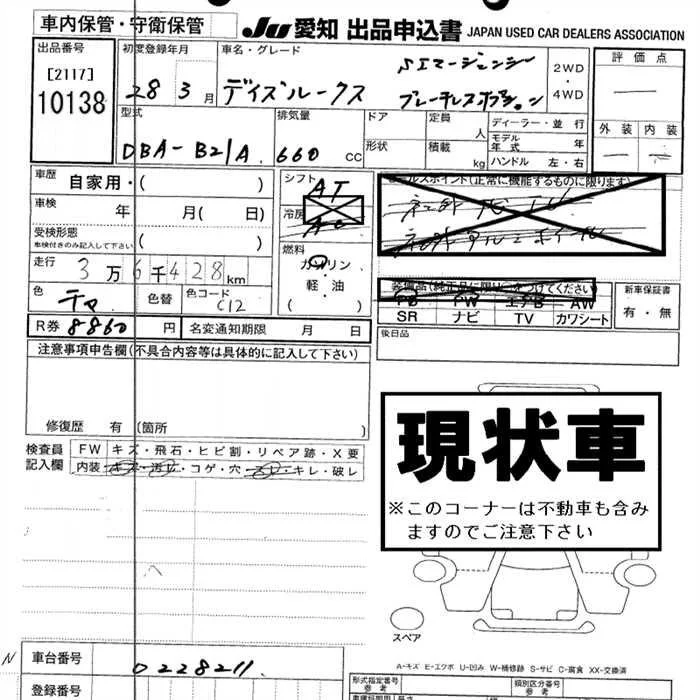 車内保管・守衛保管
JU 愛知 出品申込書 JAPAN USED CAR DEALERS ASSOCIATION
出品番号 [2117] 10138
初度登録年月 28 3月
車名・グレード デイズルークス
2WD・4WD
評価点 —
外装 内装 — —
型式 DBA-B21A
排気量 660 CC
ドア 形状
定員 人
積載 kg
ディーラー・並行
モデル年式 年
ハンドル 左・右
車歴 自家用・( )
車検 年 月( 日)
受検形態 車検付きのみ記入して下さい ( )
走行 3万6千428km
色 色替 色コード C12
シフト AT
冷房
燃料 ガソリン 軽・油 ( )
セールスポイント(正常に機能するものに限ります)
装備品(純正品に限り○をつけてください)
PB PW エアB AW
SR ナビ TV カワシート
新車保証書 有・無
R券 8860 円 名変通知期限 月 日
後日品
注意事項申告欄(不具合内容等は具体的に記入して下さい)
修復歴 有 (箇所 )
検査員記入欄
FW キズ・飛石・ヒビ割・リペア跡・X要
内装 キズ・汚レ・コゲ・穴・スレ・キレ・破レ
現状車
※このコーナーは不動車も含みますのでご注意下さい
スペア
A-キズ E-エクボ U-凹み W-補修跡 S-サビ C-腐食 XX-交換済
N 車台番号 0228211
登録番号
形式指定番号 参考
類別区分番号 参考